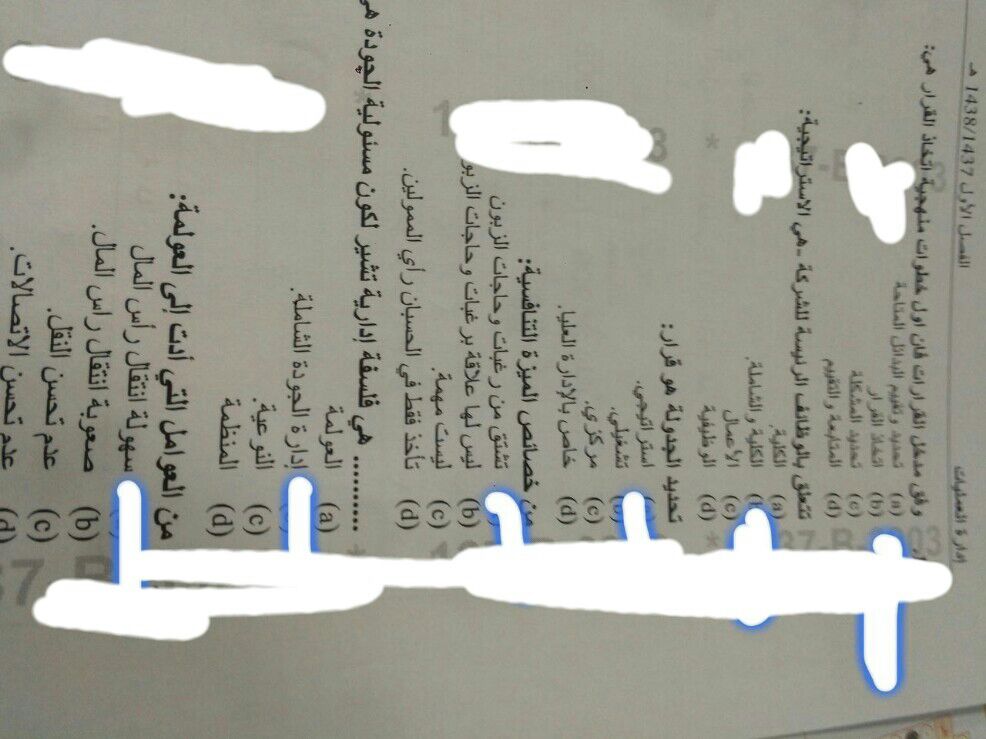 إدارة العمليات
الفصل الأول 1438/1437 هـ
وفق مدخل القرارات فان اول خطوات منهجية اتخاذ القرار هي:
(a) تحديد وتقييم البدائل المتاحة
(b) اتخاذ القرار
(c) تحديد المشكلة
(d) المتابعة والتقييم
تتعلق بالوظائف الرئيسة للشركة - هي الاستراتيجية:
(a) الكلية.
الكلية والشاملة.
(c) الأعمال
(d) الوظيفية
تحديد الجدولة هو قرار:
استراتيجي.
تشغيلي.
(c) مركزي.
(d) خاص بالإدارة العليا.
من خصائص الميزة التنافسية:
تشتق من رغبات وحاجات الزبون
(b) ليس لها علاقة برغبات وحاجات
(c) ليست مهمة.
(d) تأخذ فقط في الحسبان رأي الممولين.
.......... هي فلسفة إدارية تشير لكون مسئولية الجودة
(a) العولمة
إدارة الجودة الشاملة.
(c) النوعية.
(d) المنظمة
من العوامل التي أدت إلى العولمة:
سهولة انتقال رأس المال
(b) صعوبة انتقال راس المال.
(c) عدم تحسن النقل.
(d) عدم تحسن الاتصالات.